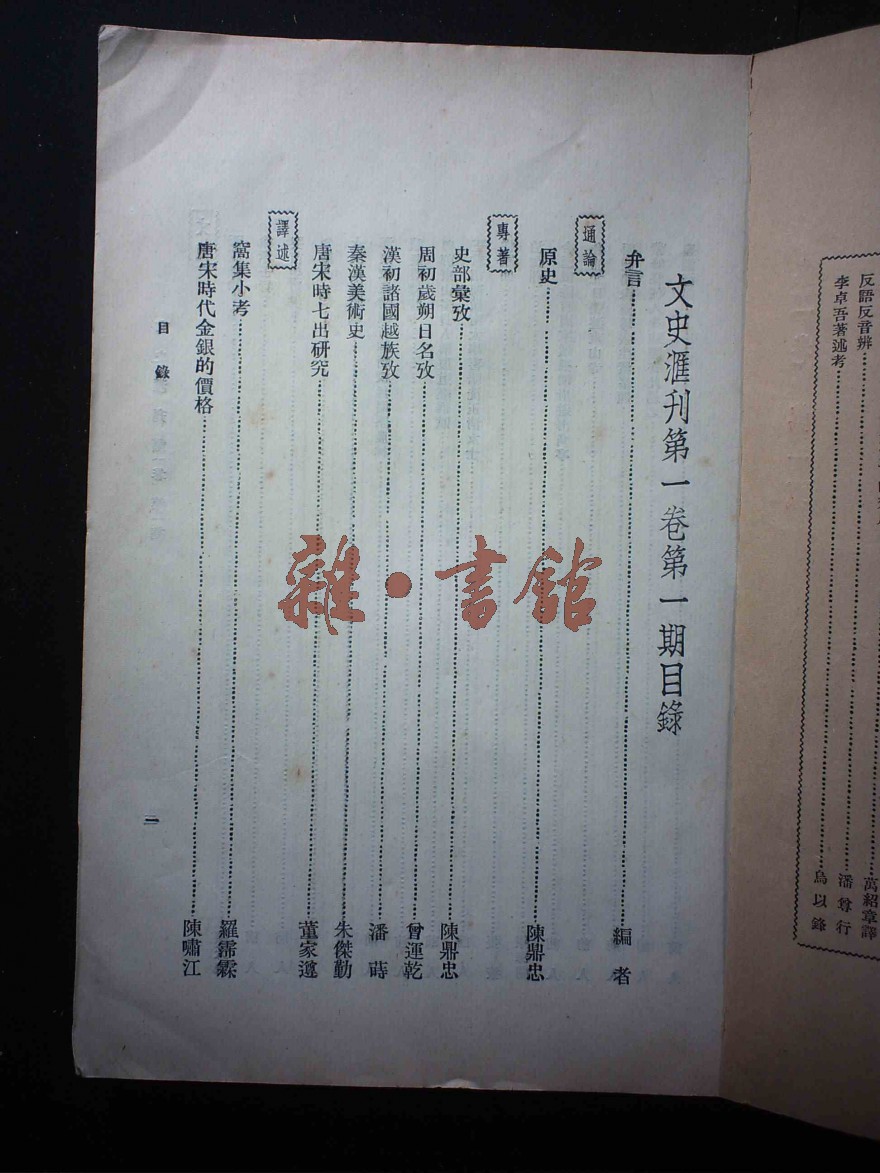 反語反音辨……萬紹章譯
李卓吾著述考……潘尊行
烏以鋒
文史滙刊第一卷第一期目錄
弁言……編者
通論
原史……陳鼎忠
專著
史部彙攷……陳鼎忠
周初歲朔日名攷……曾運乾
漢初諸國越族攷……潘蒔
秦漢美術史……朱傑勤
唐宋時七出研究……董家遵
譯述
窩集小考……羅霈霖
唐宋時代金銀的價格……陳嘯江
目錄
一
雜·書館